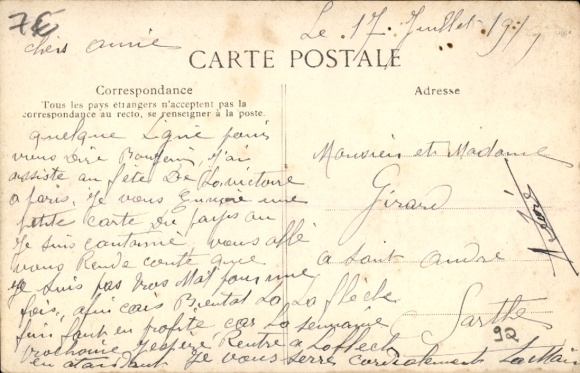 7€
Le 17 Juillet 191
chers amie
CARTE POSTALE
Correspondance
Tous les pays étrangers n'acceptent pas la
correspondance au recto, se renseigner à la poste.
Adresse
quelque Ligne pour
vous dire Bonjour, J'ai
assiste au fête De La victoire
a paris. Je vous envoie une
petite carte Du pays au
Je suis cantonné, vous allé
vous Rendre conte que
Je suis pas tros Mal pour une
fois,
fini faut en profite car La semaine
prochaine J'espere Rentre a Lafleche
en attendant Je vous serre cordialement La Main
Monsieur et Madame
Girard
a saint andré
Sarthe